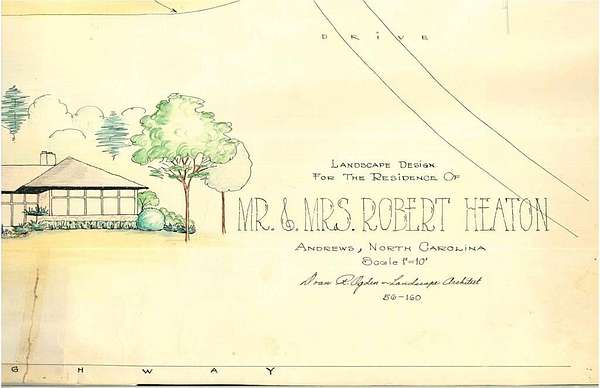 DRIVE
LANDSCAPE DESIGN
FOR THE RESIDENCE OF
MR. & MRS. ROBERT HEATON
ANDREWS, NORTH CAROLINA
Scale 1"=10'
Doan R. Ogden - Landscape Architect
56-160
GHWAY